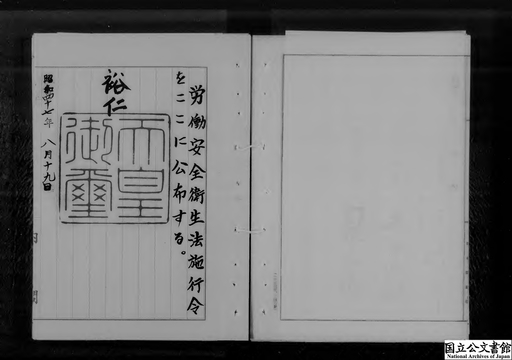 労働安全衛生法施行令
をここに公布する。
裕仁
天皇
御璽
昭和四十七年 八月十九日
内閣
国立公文書館
National Archives of Japan